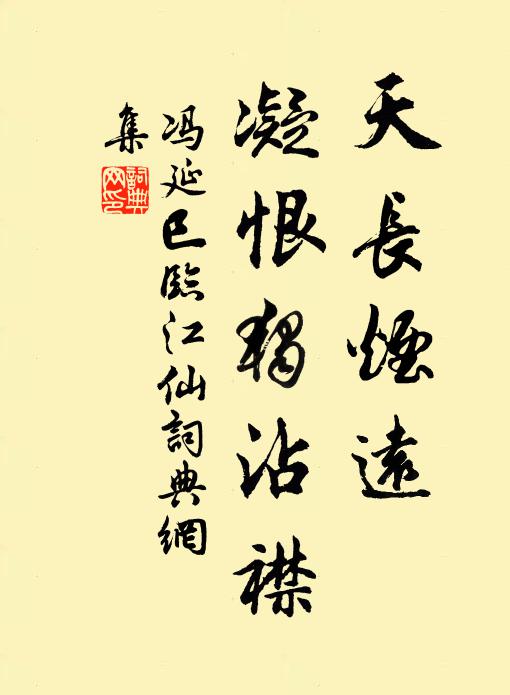 天長煙遠
凝恨獨沾襟
冯延巳臨江仙詞典網
集
詞典
网印